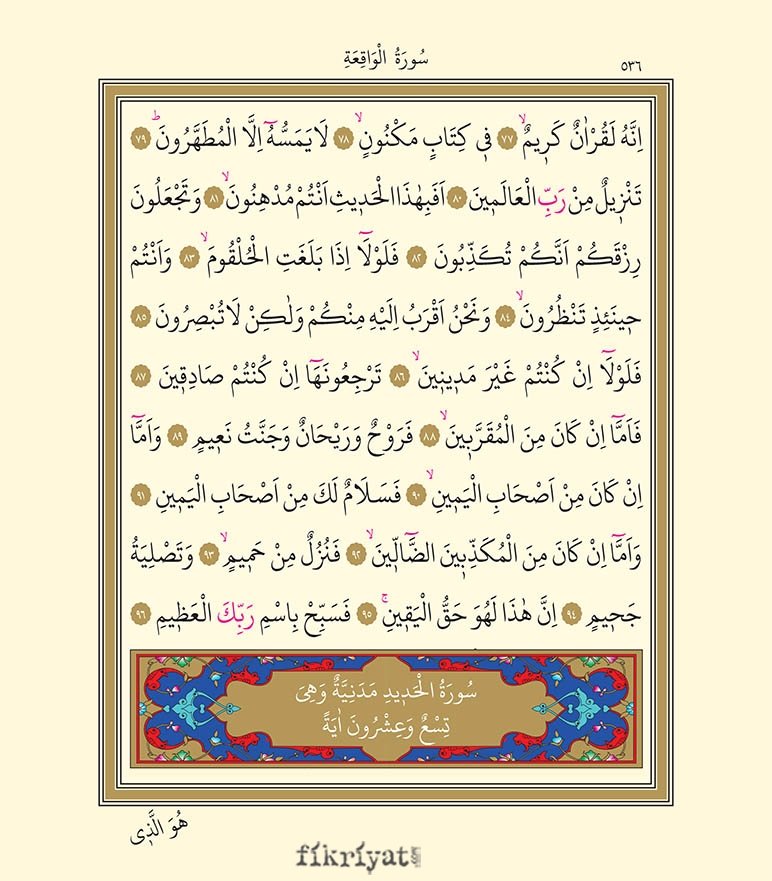 سُورَةُ الْوَاقِعَةِ
٥٣٦
اِنَّهُ لَقُرْاٰنٌ كَرٖيمٌۙ ﴿٧٧﴾ فٖى كِتَابٍ مَكْنُونٍۙ ﴿٧٨﴾ لَا يَمَسُّهُٓ اِلَّا الْمُطَهَّرُونَؕ ﴿٧٩﴾
تَنْزٖيلٌ مِنْ رَبِّ الْعَالَمٖينَ ﴿٨٠﴾ اَفَبِهٰذَا الْحَدٖيثِ اَنْتُمْ مُدْهِنُونَۙ ﴿٨١﴾ وَتَجْعَلُونَ
رِزْقَكُمْ اَنَّكُمْ تُكَذِّبُونَ ﴿٨٢﴾ فَلَوْلَٓا اِذَا بَلَغَتِ الْحُلْقُومَۙ ﴿٨٣﴾ وَاَنْتُمْ
حٖينَئِذٍ تَنْظُرُونَۙ ﴿٨٤﴾ وَنَحْنُ اَقْرَبُ اِلَيْهِ مِنْكُمْ وَلٰكِنْ لَا تُبْصِرُونَ ﴿٨٥﴾
فَلَوْلَٓا اِنْ كُنْتُمْ غَيْرَ مَدٖينٖينَۙ ﴿٨٦﴾ تَرْجِعُونَهَٓا اِنْ كُنْتُمْ صَادِقٖينَ ﴿٨٧﴾
فَاَمَّٓا اِنْ كَانَ مِنَ الْمُقَرَّبٖينَۙ ﴿٨٨﴾ فَرَوْحٌ وَرَيْحَانٌ وَجَنَّتُ نَعٖيمٍ ﴿٨٩﴾ وَاَمَّٓا
اِنْ كَانَ مِنْ اَصْحَابِ الْيَمٖينِۙ ﴿٩٠﴾ فَسَلَامٌ لَكَ مِنْ اَصْحَابِ الْيَمٖينِ ﴿٩١﴾
وَاَمَّٓا اِنْ كَانَ مِنَ الْمُكَذِّبٖينَ الضَّٓالّٖينَۙ ﴿٩٢﴾ فَنُزُلٌ مِنْ حَمٖيمٍۙ ﴿٩٣﴾ وَتَصْلِيَةُ
جَحٖيمٍ ﴿٩٤﴾ اِنَّ هٰذَا لَهُوَ حَقُّ الْيَقٖينِۚ ﴿٩٥﴾ فَسَبِّحْ بِاسْمِ رَبِّكَ الْعَظٖيمِ ﴿٩٦﴾
سُورَةُ الْحَدٖيدِ مَدَنِيَّةٌ وَهِىَ
تِسْعٌ وَعِشْرُونَ اٰيَةً
هُوَ الَّذٖى
fikriyat.com